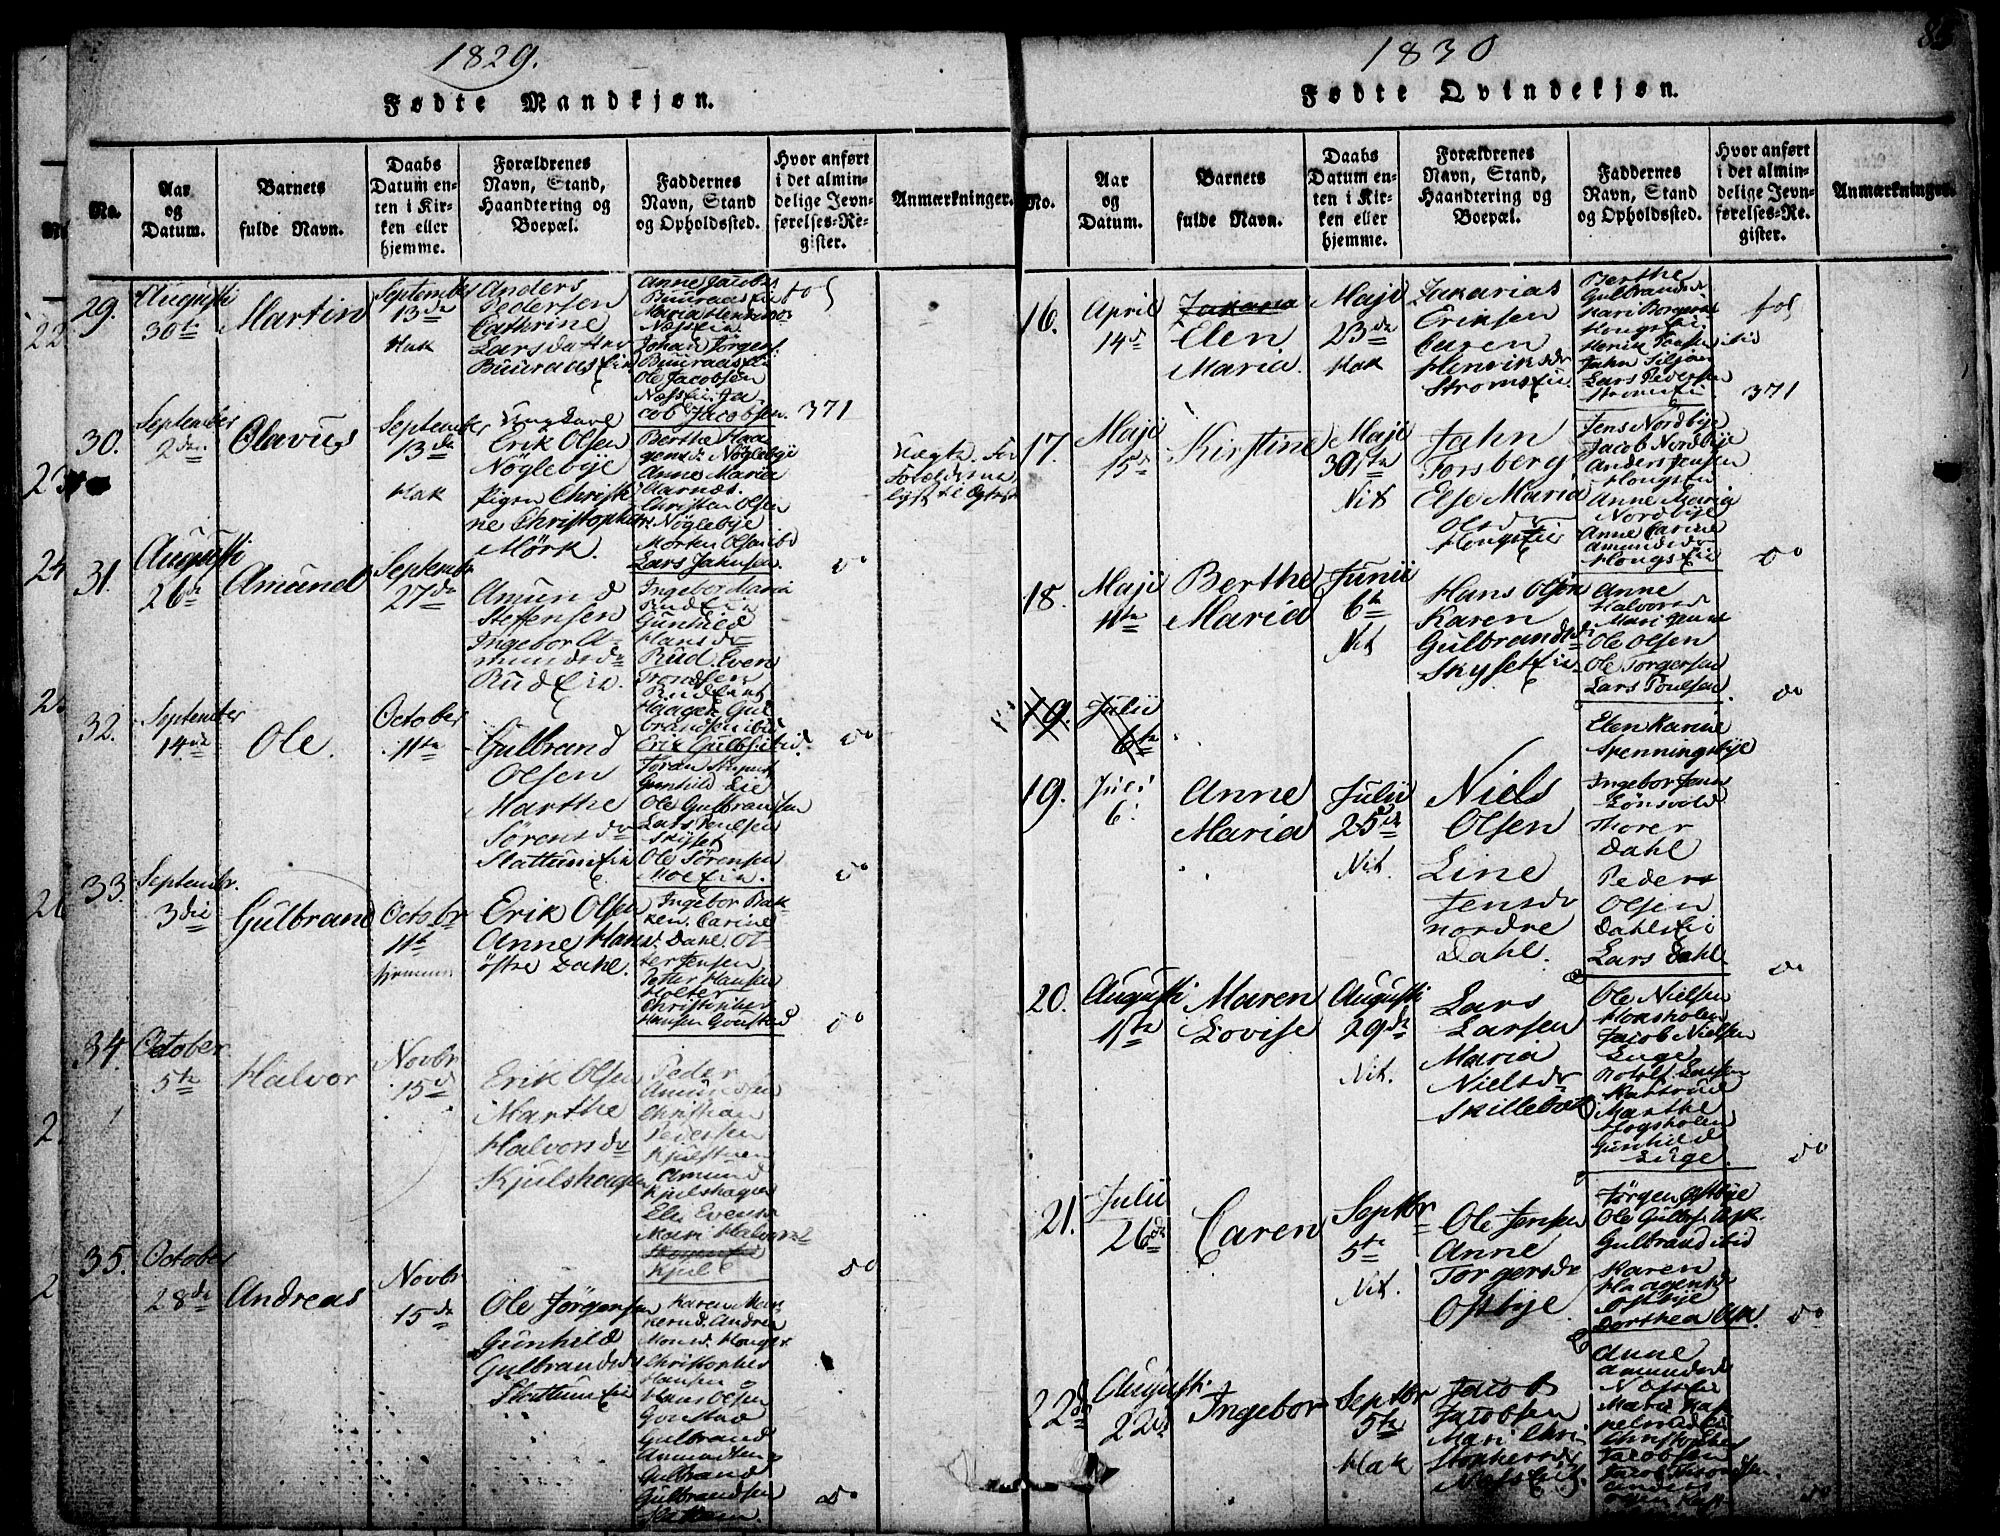 1829.
Fødte Mandkjøn.
No.
Aar
og
Datum.
Barnets
fulde Navn.
Daabs
Datum en-
ten i Kir-
ken eller
hjemme.
Forældrenes
Navn, Stand,
Haandtering og
Boepæl.
Faddernes
Navn, Stand
og Opholdssted.
Hvor anført
i det almin-
delige Jevn-
førelses-Re-
gister.
Anmærkninger.
29.
Augusti
30te
Martin
September
13de
Hak
Anders
Pedersen
Cathrine
Larsdatter
Buuraas Eie
Anne Jacobs
Buuraas Eie
Maria Henriks
Næss Eie
Johan Jörgens.
Buuraas Eie
Ole Jacobsen
Næss Eie. Ja
cob Jacobsen.
fol
371
30.
September
2den
Olavus
September
13de
Hak
Ungkarl
Erik Olsen
Nöglebye
Pigen Christi
ne Christophers
Mörk.
Berthe Haa
gensd. Nöglebye
Anne Maria
Aarnæs.
Christen Olsen
Nöglebye
Morten Olsen ibd
Lars Jahnsen
31.
Augusti
26de
Amund
Septembr
27de
Amund
Steffensen
Ingebor A-
mundsdr
Rud Eie.
Ingebor Maria
Rud Eie
Gunhild
Hansdr
Rud. Even
Trondsen
Rud Eie
Haagen Gul
brandsen ibd
Erik Gulbs. ibid.
do
32.
September
14de
Ole.
October
11te
Gulbrand
Olsen
Marthe
Sörensdr
Slattum Eie
Gunhild Lie
Ole Gulbrandsen
Lars Poulsen
Skyset
Ole Sörensen
Moe Eie.
do
33.
Septembr.
3die
Gulbrand
Octobr
11te
Erik Olsen
Anne Hansd.
östre Dahl.
Ingebor Bak-
ken. Carine
Dahl. Ot-
ter Jensen
Peter Hansen
Holter
Christopher
Hansen Goustad
do
34.
October
5te
Halvor
Novbr
15de
Erik Olsen
Marthe
Halvorsdr
Kjulshagen
Peder
Amundsen
Christian
Pedersen
Kjulstuen
Amund
Kjulshagen
Eli Evensd
Mari Halvorsd
Kjul
do
35.
October
28de
Andreas
Novbr
15de
Ole Jörgensen
Gunhild
Gulbrandsdr
Slattum Eie
Karen Man
nerud. Andrea
Christopher
Hansen og
Hans Olsen
Goustad
Gulbrand
Amundsen
Gulbrand
Gulbrandsen
do
do
1830
Fødte Qvindekjøn.
No.
Aar
og
Datum.
Barnets
fulde Navn.
Daabs
Datum en-
ten i Kir-
ken eller
hjemme.
Forældrenes
Navn, Stand,
Haandtering og
Boepæl.
Faddernes
Navn, Stand
og Opholdssted.
Hvor anført
i det almin-
delige Jevn-
førelses-Re-
gister.
Anmærkninger.
16.
April
14de
Elen
Maria
Maji
23de
Hak
Zakarias
Eriksen
Caren
Henriksdr
Stroms Eie
Berthe
Gulbrandsdr
Kari Borgersd
Hougs Eie
Henrik Poulsen ibid
Jahn Siljan
Lars Pedersen
Stroms Eie
fol
371
17.
Maji
15de
Kirstine
Maji
30te
Nit
Jahn
Forsberg
Else Maria
Olsdr
Hougs Eie
Jens Nordbye
Jacob Nordbye
Anders Jensen
Hougs Eie
Anne Maria
Nordbye
Anne Carine
Amundsdr
Hougs Eie
do
18.
Maji
11te
Berthe
Maria
Junii
6te
Nit
Hans Olsen
Karen
Gulbrandsdr
Skyset Eie
Anne
Halvorsd
Mari Jensd
Ole Olsen
Ole Torgersen
Lars Poulsen.
do
19.
Julii
6te
Elen Hanne
Spenningsbye
19.
Juli
6.
Anne
Maria
Julii
25de
Nit.
Niels
Olsen
Line
Jensdr
nordre
Dahl.
Ingebor Jensd
Lönsvold
Thorer
Dahl
Peder
Olsen
Dahls Eie
Lars Dahl.
do
20.
Augusti
11te
Maren
Lovise
Augusti
29de
Nit.
Lars
Larsen
Maria
Nielsdr
Skillebæk
Ole Nielsen
Jacob Nielsen
Luge
Marthe
Gunhild
Luge.
do
21.
Julii
26de
Caren
Septbr
5te
Nit.
Ole Jensen
Anne
Torgersdr
Ostbye
Jörgen Ostbye
Ole Gulbs. Ask.
Gulbrand ibid
Karen
Haagensd
Ostbye
Dorthea Ask.
do
22de
Augusti
22de
Ingebor
Septbr
5te
Hak
Jacob
Jacobsen
Mari Chri
stophersdr
Næss Eie
Anne
Amundsd
Næss Eie
Marie Kap
Christopher
Jacobsen
Jacob Throndsen
do